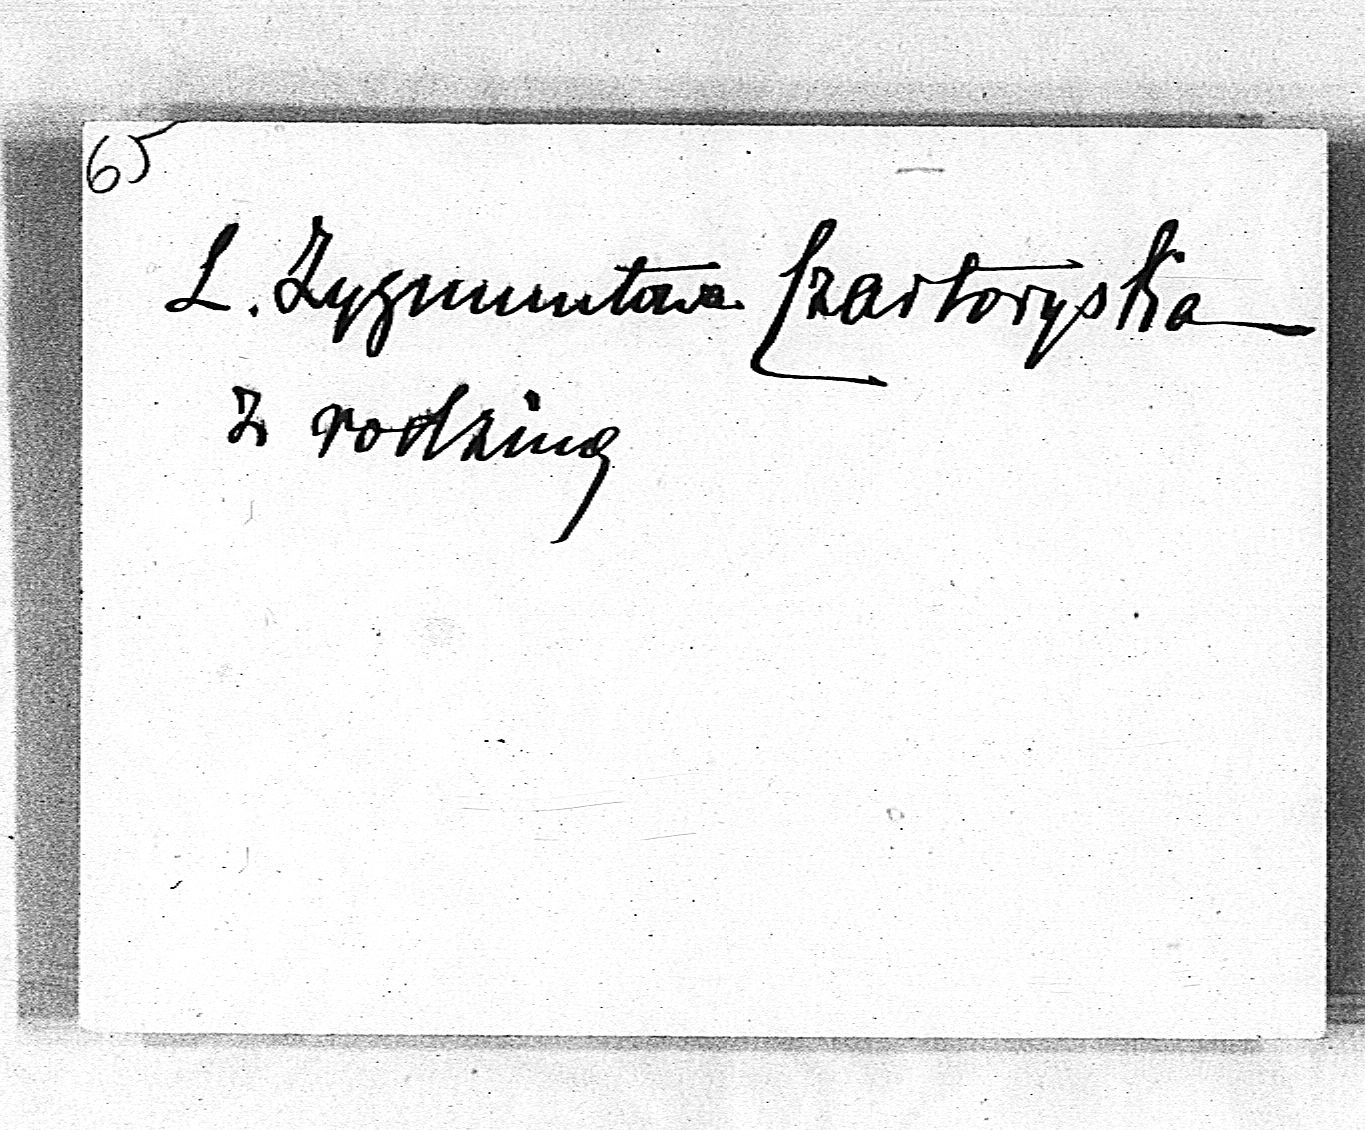 65
L. Zygmuntowa Czartoryska
z rodziną